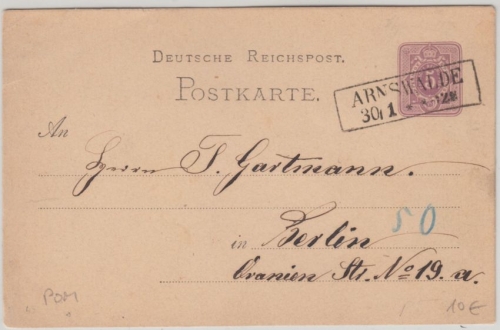 DEUTSCHE REICHSPOST.
POSTKARTE.
ARNSWALDE
30/1 *
5
An
Herrn F. Gartmann.
50
in Berlin
Oranien Str. No 19. a.
POM
10€